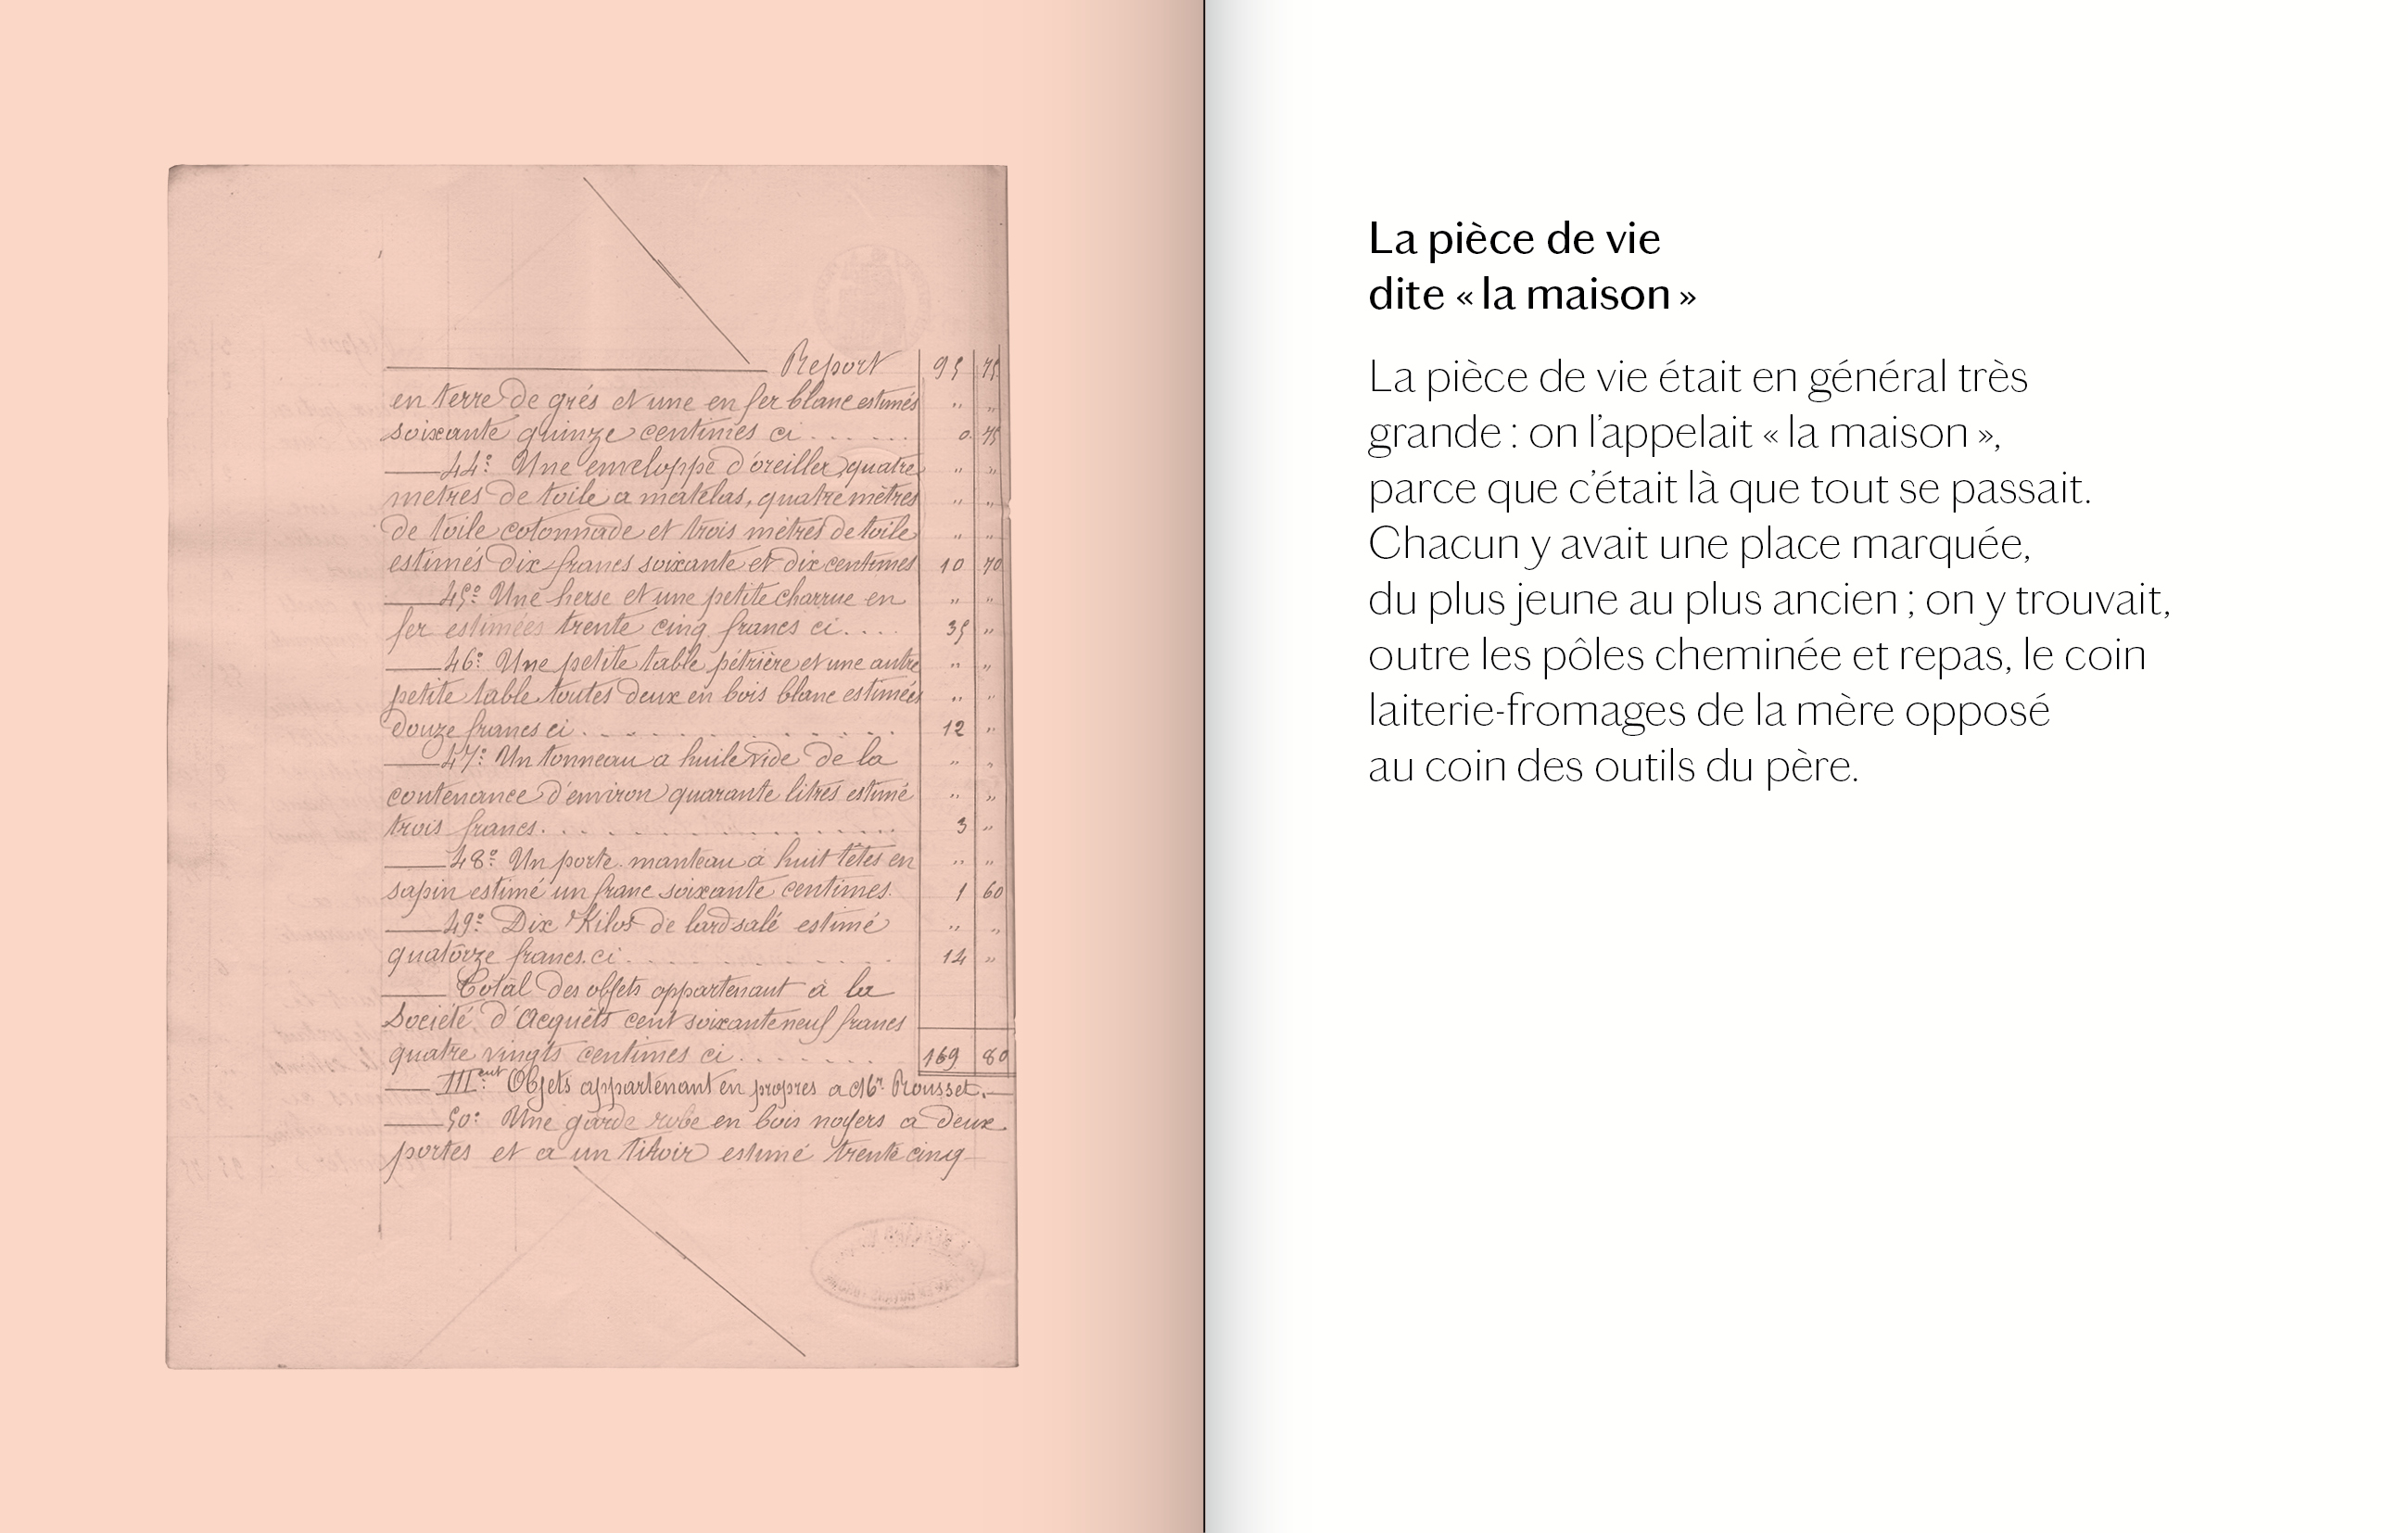 Report 95 75
en terre de grés et une en fer blanc estimés " "
soixante quinze centimes ci . . . . . . 0. 75
44º Une enveloppe d'oreiller, quatre " "
metres de toile a matelas, quatre mètres " "
de toile cotonnade et trois mètres de toile " "
estimés dix francs soixante et dix centimes 10 70
45º Une herse et une petite charrue en " "
fer estimées trente cinq francs ci . . . . 35 "
46º Une petite table pétrière et une autre " "
petite table toutes deux en bois blanc estimées " "
douze francs ci . . . . . . . . . . . 12 "
47º Un tonneau a huile vide de la " "
contenance d'environ quarante litres estimé " "
trois francs . . . . . . . . . . . . . . 3 "
48º Un porte-manteau à huit têtes en " "
sapin estimé un franc soixante centimes. 1 60
49º Dix Kilos de lard salé estimé " "
quatorze francs. ci . . . . . . . . . . 14 "
Total des objets appartenant à la
Société d'Acquêts cent soixante neuf francs
quatre vingts centimes ci . . . . . . . 169 80
IIIent Objets appartenant en propres a Mr. Rousset.
50º Une garde robe en bois noyers a deux
portes et a un tiroir estimé trente cinq
La pièce de vie
dite « la maison »
La pièce de vie était en général très
grande : on l’appelait « la maison »,
parce que c’était là que tout se passait.
Chacun y avait une place marquée,
du plus jeune au plus ancien ; on y trouvait,
outre les pôles cheminée et repas, le coin
laiterie-fromages de la mère opposé
au coin des outils du père.